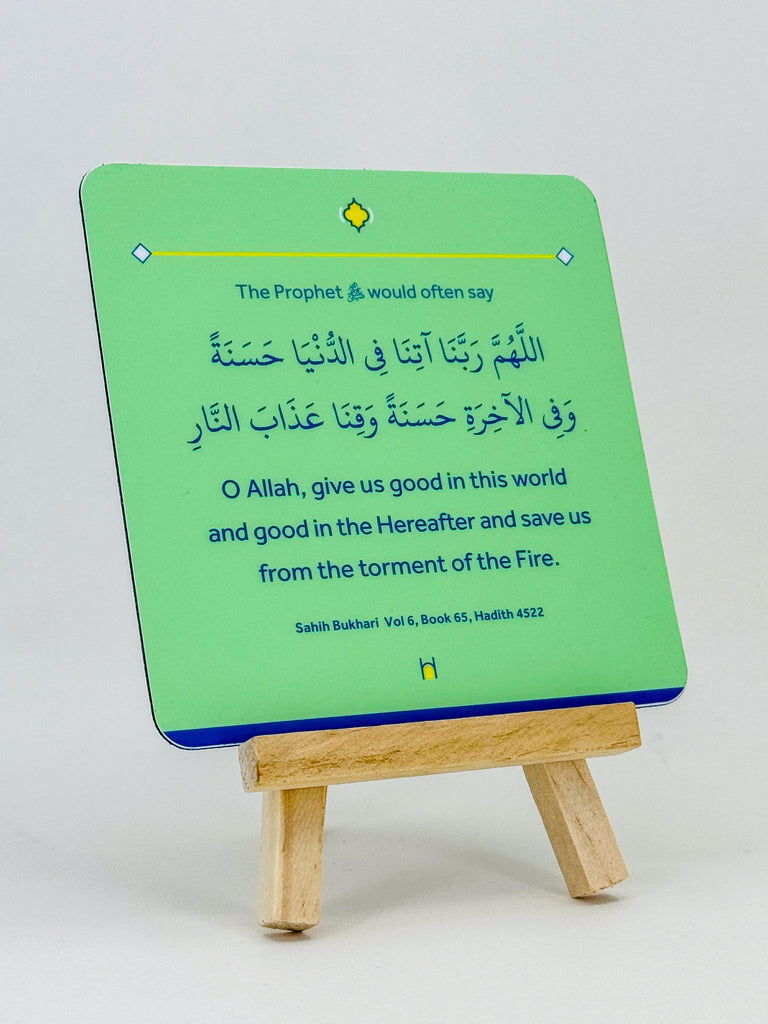 The Prophet ﷺ would often say
اللَّهُمَّ رَبَّنَا آتِنَا فِي الدُّنْيَا حَسَنَةً
وَفِي الْآخِرَةِ حَسَنَةً وَقِنَا عَذَابَ النَّارِ
O Allah, give us good in this world
and good in the Hereafter and save us
from the torment of the Fire.
Sahih Bukhari Vol 6, Book 65, Hadith 4522